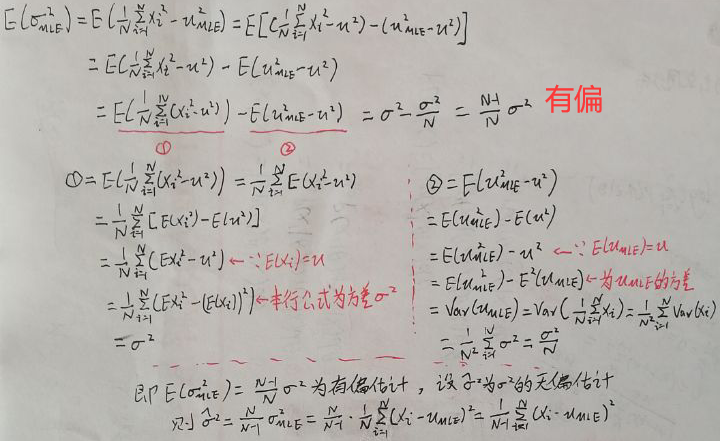 E(σ²_MLE) = E(1/N ∑_{i=1}^N x_i² - u²_MLE) = E[(1/N ∑_{i=1}^N x_i² - u²) - (u²_MLE - u²)]
= E(1/N ∑_{i=1}^N x_i² - u²) - E(u²_MLE - u²)
= E(1/N ∑_{i=1}^N (x_i² - u²)) - E(u²_MLE - u²) = σ² - σ²/N = N-1/N σ² 有偏
① ②
① = E(1/N ∑_{i=1}^N (x_i² - u²)) = 1/N ∑_{i=1}^N E(x_i² - u²)
= 1/N ∑_{i=1}^N [E(x_i²) - E(u²)]
= 1/N ∑_{i=1}^N (Ex_i² - u²) ← ∵ E(x_i) = u
= 1/N ∑_{i=1}^N (Ex_i² - (E(x_i))²) ← 本行公式为方差σ²
= σ²
② = E(u²_MLE - u²)
= E(u²_MLE) - E(u²)
= E(u²_MLE) - u² ← ∵ E(u_MLE) = u
= E(u²_MLE) - E²(u_MLE) ← 为u_MLE的方差
= Var(u_MLE) = Var(1/N ∑_{i=1}^N x_i) = 1/N² ∑_{i=1}^N Var(x_i)
= 1/N² ∑_{i=1}^N σ² = σ²/N
即 E(σ²_MLE) = N-1/N σ² 为有偏估计，设 σ̂² 为 σ² 的无偏估计
则 σ̂² = N/N-1 σ²_MLE = N/N-1 · 1/N ∑_{i=1}^N (x_i - u_MLE)² = 1/N-1 ∑_{i=1}^N (x_i - u_MLE)²